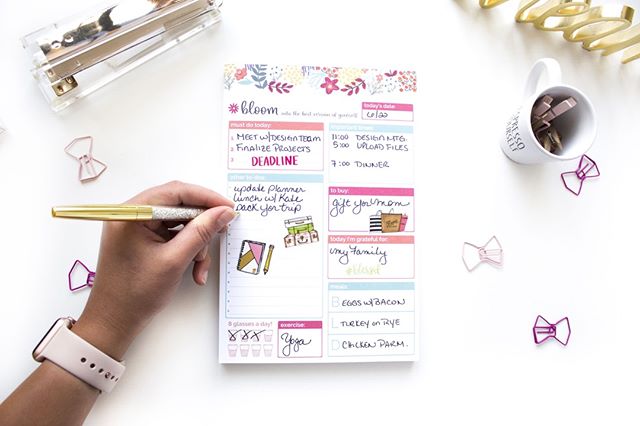 bloom into the best version of yourself.
today's date:
6/20
must do today:
1 MEET W/DESIGN TEAM
2 FINALIZE PROJECTS
3 DEADLINE
11:00 DESIGN MTG.
5:00 UPLOAD FILES
7:00 DINNER
other to-dos:
update planner
lunch w/ Kate
pack for trip
to buy:
gift for mom
today I'm grateful for:
my family
#blessed
meals:
B EGGS W/BACON
L TURKEY on RYE
D CHICKEN PARM.
8 glasses a day!
exercise:
Yoga
ESPRESSO
YOURSELF